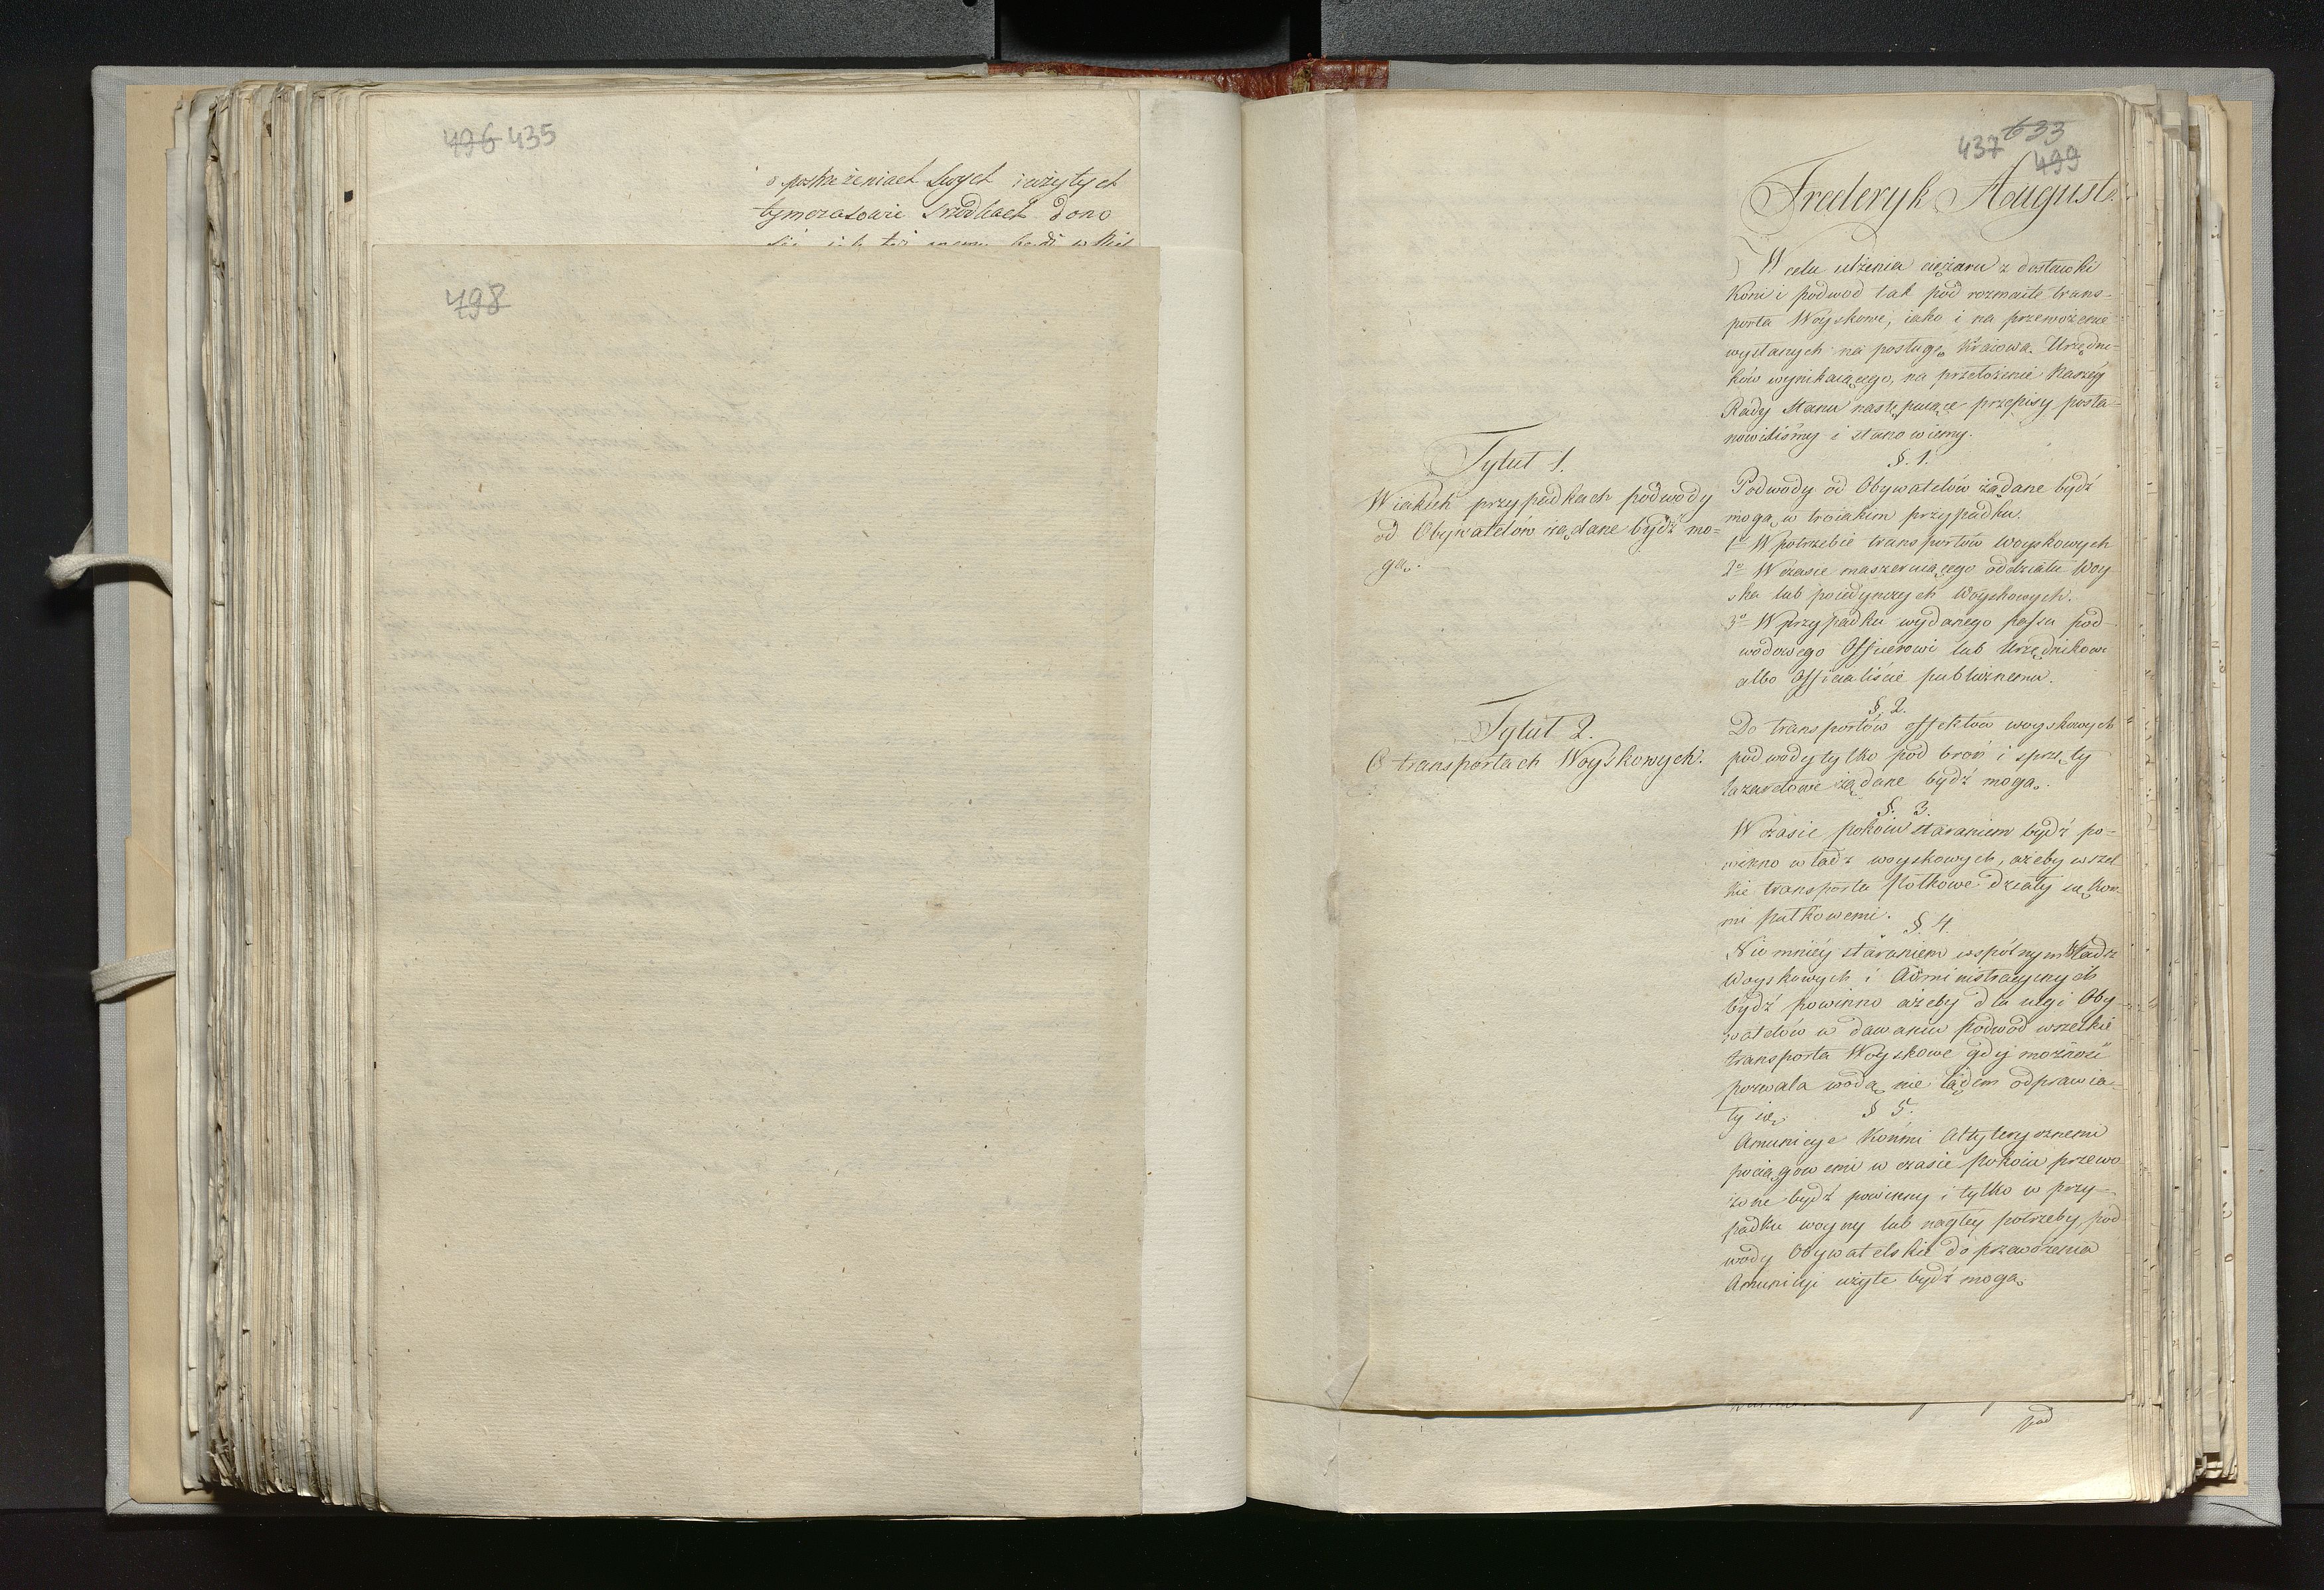 496 435
o postrzeżeniach swych i użytych
tymczasowie srzodkach dono
498
437 633
499
Frederyk August
W celu ulżenia ciężaru z dostawki
Koni i podwod tak pod rozmaite trans-
porta Woyskowe, iako i na przewożenie
wysłanych na posługę Kraiową Urzędni-
ków wynikaiącego, na przełożenie Naszéy
Rady Stanu następuiące przepisy posta-
nowiliśmy i stanowiemy.
Tytuł 1.
W iakich przypadkach podwody
od Obywatelów żądane bydź mo-
gą.
§. 1.
Podwody od Obywatelów żądane bydź
mogą w troiakim przypadku.
1o W potrzebie transportów woyskowych
2o W czasie maszeruiącego oddziału Woy
ska lub poiedynczych Woyskowych.
3o W przypadku wydanego passu pod-
wodowego Officerowi lub Urzędnikowi
albo Officialiście publicznemu.
Tytuł 2.
O transportach Woyskowych.
§. 2.
Do transportów effektów woyskowych
podwody tylko pod broń i sprzęty
lazaretowe żądane bydź mogą.
§. 3.
W czasie pokoiu staraniem bydź po-
winno władz woyskowych, ażeby wszel
kie transporta półkowe działy się Koń
mi pułkowemi.
§. 4.
Nie mniéy staraniem wspólnym Władz
Woyskowych i Administracyinych
bydź powinno ażeby dla ulgi Oby-
watelów w dawaniu podwod wszelkie
transporta Woyskowe gdy możność
pozwala wodą nie lądem odprawia-
ły się.
§ 5.
Amunicye Końmi Artylerycznemi
pociągowemi w czasie pokoiu przewo
żone bydź powinny i tylko w przy-
padku woyny lub nagłéy potrzeby pod
wody Obywatelskie do przewożenia
Amunicyi użyte bydź mogą.
pod